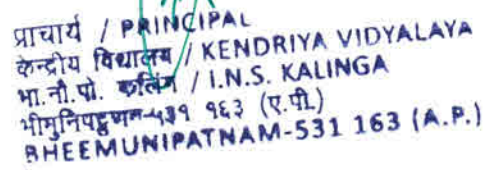 प्राचार्य / PRINCIPAL
केन्द्रीय विद्यालय / KENDRIYA VIDYALAYA
भा.नौ.पो. कलिंग / I.N.S. KALINGA
भीमुनिपट्टणम-५३१ १६३ (ए.पी.)
BHEEMUNIPATNAM-531 163 (A.P.)